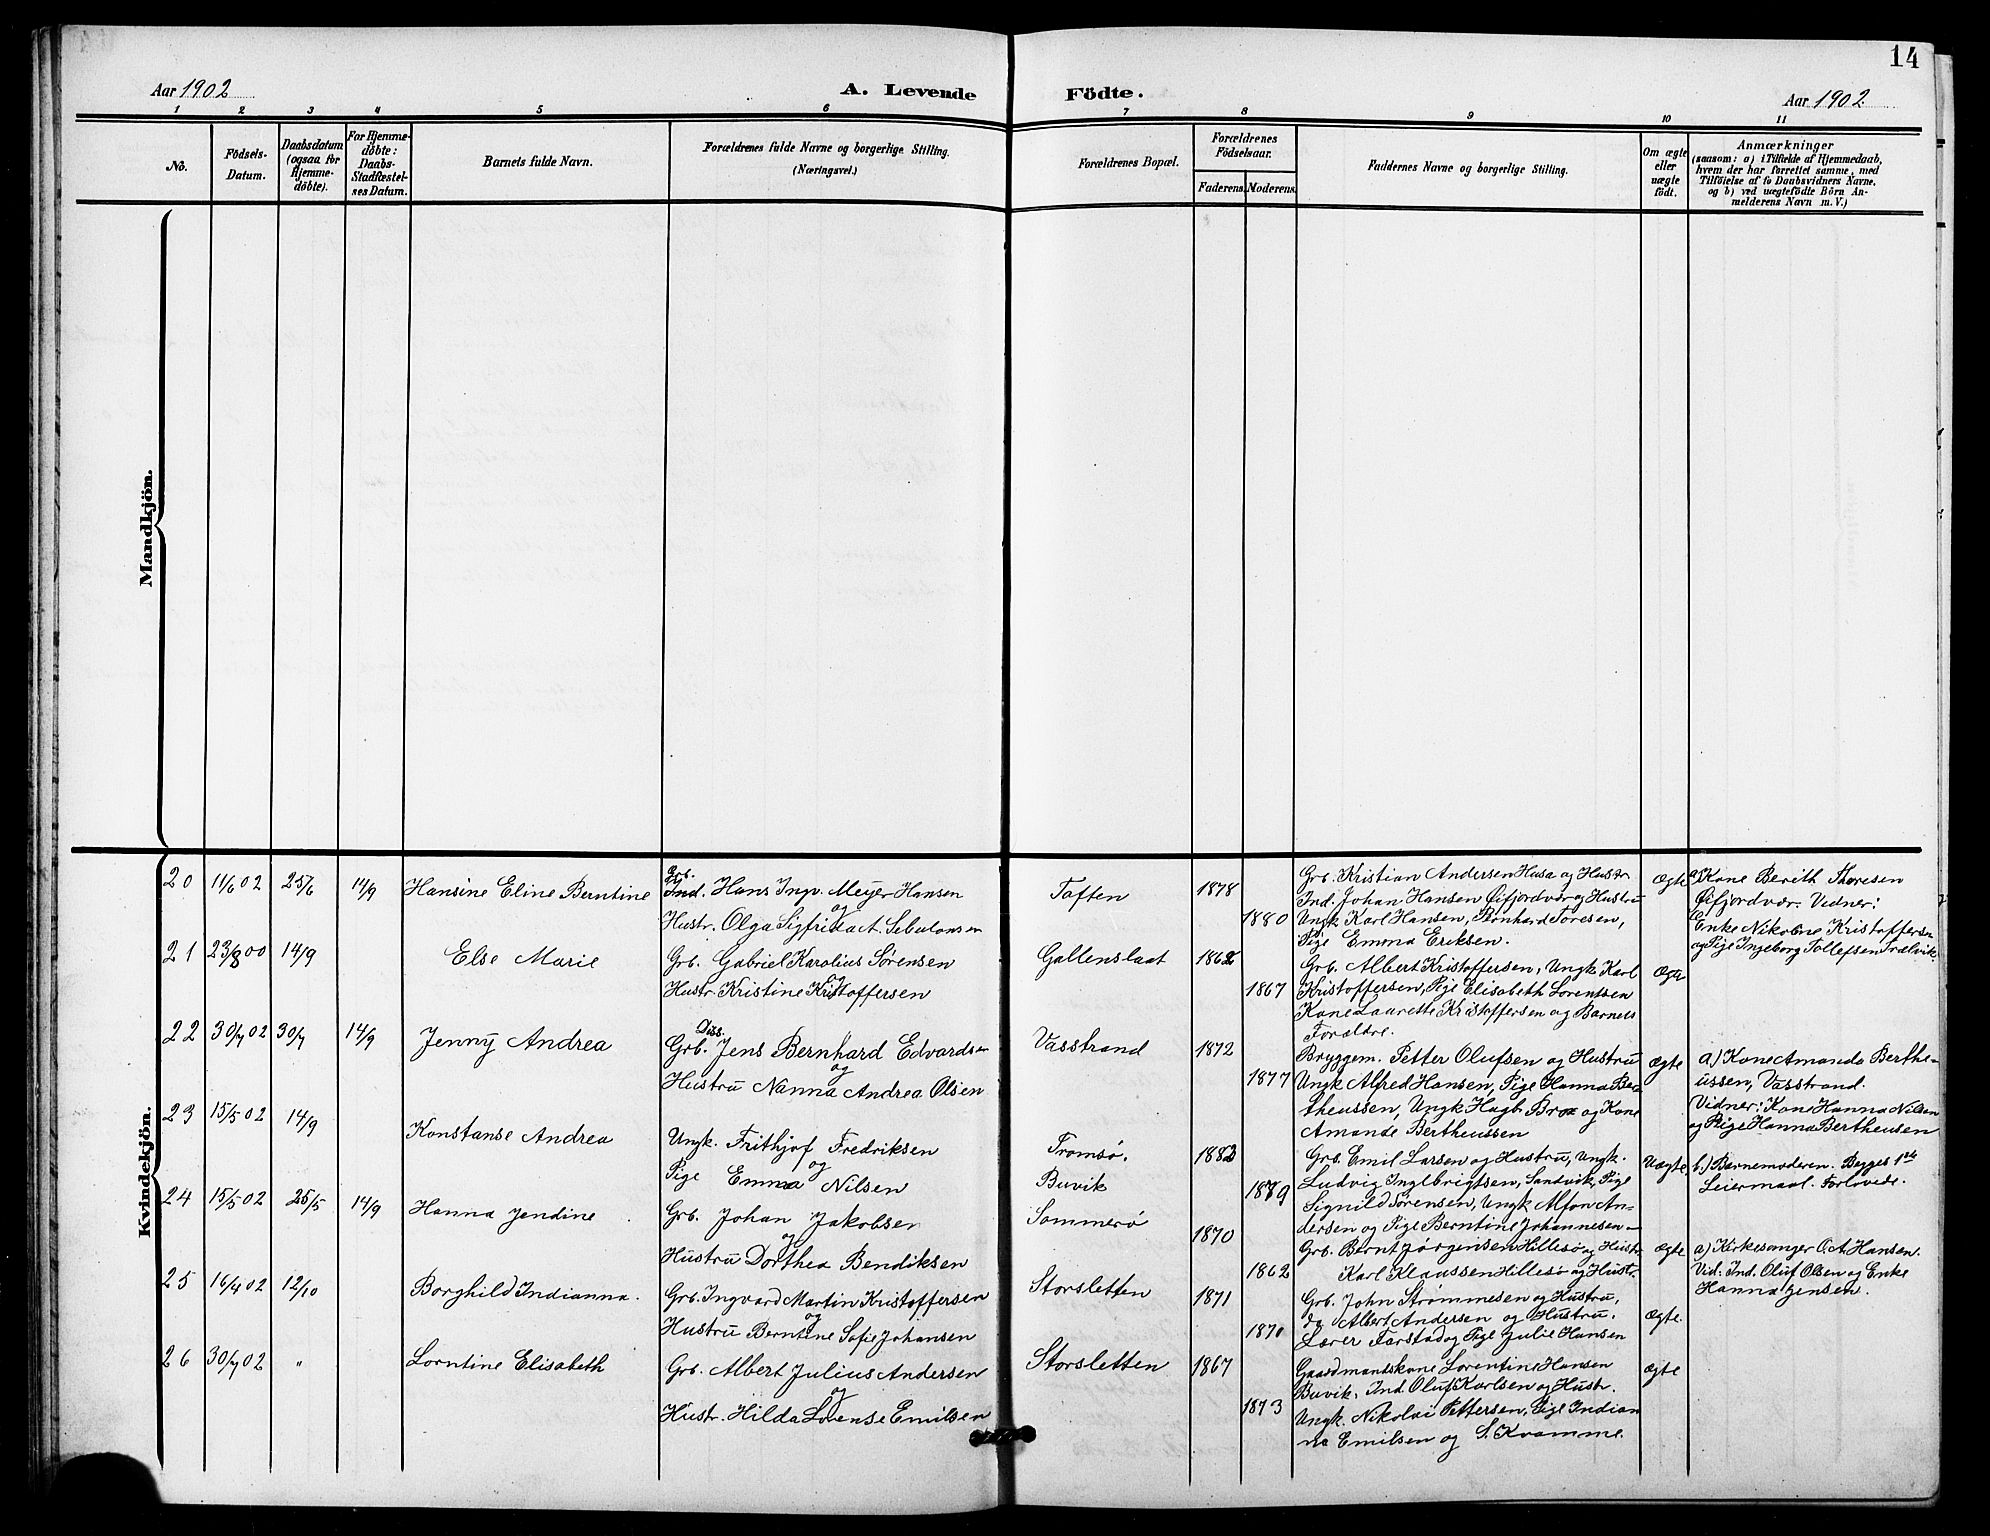 14
Aar 1902
A. Levende Födte.
Aar 1902.
1 2 3 4 5 6 7 8 9 10 11
No.
Födsels-
Datum.
Daabsdatum
(ogsaa for
Hjemme-
döbte).
For Hjemme-
döbte:
Daabs-
Stadfæstel-
ses Datum.
Barnets fulde Navn.
Forældrenes fulde Navne og borgerlige Stilling.
(Næringsvei.)
Forældrenes Bopæl.
Forældrenes
Födselsaar.
Faderens. Moderens.
Faddernes Navne og borgerlige Stilling.
Om ægte
eller
uægte
födt.
Anmærkninger
(saasom: a) i Tilfælde af Hjemmedaab,
hvem der har forrettet samme, med
Tilföielse af to Daabsvidners Navne,
og b) ved uægtefödte Börn An-
melderens Navn m. V.)
Mandkjön.
Kvindekjön.
20 11/6 02 25/6 14/9 Hansine Eline Berntine
Grb.
Ind. Hans Ingv. Meyer Hansen
og
Hustr. Olga Sigfrida A. Sebulonsen
Toften 1878
1880
Grb. Kristian Andersen Husa og Hustr.
Ind. Johan Hansen Øifjordvær og Hustru
Ungk Karl Hansen, Bernhard Toresen,
Pige Emma Eriksen.
Ægte
a) Kone Berith Thoresen
Øifjordvær. Vidner:
Enke Nikoline Kristoffersen
og Pige Ingeborg Tollefsen Trælvik.
21 23/8 00 14/9 Else Marie
Grb. Gabriel Karolius Sørensen
og
Hustr. Kristine Kristoffersen
Gallenslaat 1862
1867
Grb. Albert Kristoffersen, Ungk Karl
Kristoffersen, Pige Elisabeth Lorentsen
Kone Laurette Kristoffersen og Barnets
Forældre.
Ægte
22 30/7 02 30/7 14/9 Jenny Andrea
Diss.
Grb. Jens Bernhard Edvardsen
og
Hustru Nanna Andrea Olsen
Vasstrand 1872
1877
Bryggem. Petter Olufsen og Hustru
Ungk Alfred Hansen, Pige Hanna Ber-
theussen, Ungk Hagb. Brox og Kone
Amande Bertheussen
Ægte
a) Kone Amanda Berthe-
ussen, Vasstrand.
Vidner: Kone Hanna Nilsen
og Pige Hanna Bertheusen
23 15/5 02 14/9
Konstanse Andrea
Ungk. Frithjof Fredriksen
og
Pige Emma Nilsen
Tromsø.
Buvik
1883
1879
Grb. Emil Larsen og Hustru, Ungk.
Ludvig Ingebrigtsen, Sandvik, Pige
Signild Sørensen, Ungk Alfon An-
dersen og Pige Berntine Johannesen
Uægte
b.) Barnemoderen. Begges 1ste
Leiermaal. Forlovede.
24 15/5 02 25/5 14/9 Hanna Jendine
Grb. Johan Jakobsen
og
Hustru Dorthea Bendiksen
Sommerø
1870
1862
Grb. Bernt Jørgensen Hillesø og Hustr.
Karl Klaussen Hillesø og Hustr.
Ægte
a) Kirkesanger O. A. Hansen.
Vid: Ind. Oluf Olsen og Enke
Hanna Jensen.
25 16/4 02 12/10 Borghild Indianna.
Grb. Ingvard Martin Kristoffersen
og
Hustru Berntine Sofie Johansen
Storsletten 1871
1870
Grb. John Strømmesen og Hustru,
do Albert Andersen og Hustru.
Lærer Farstad og Pige Julie Hansen
Ægte.
26 30/7 02 " Lorntine Elisabeth
Grb. Albert Julius Andersen
og
Hustr. Hilda Lorense Emilsen
Storsletten 1867
1873
Gaardmandskone Lorentine Hansen
Buvik, Ind. Oluf Karlsen og Hustr.
Ungk. Nikolai Pettersen, Pige Indian-
na Emilsen og S. Kvamme.
Ægte